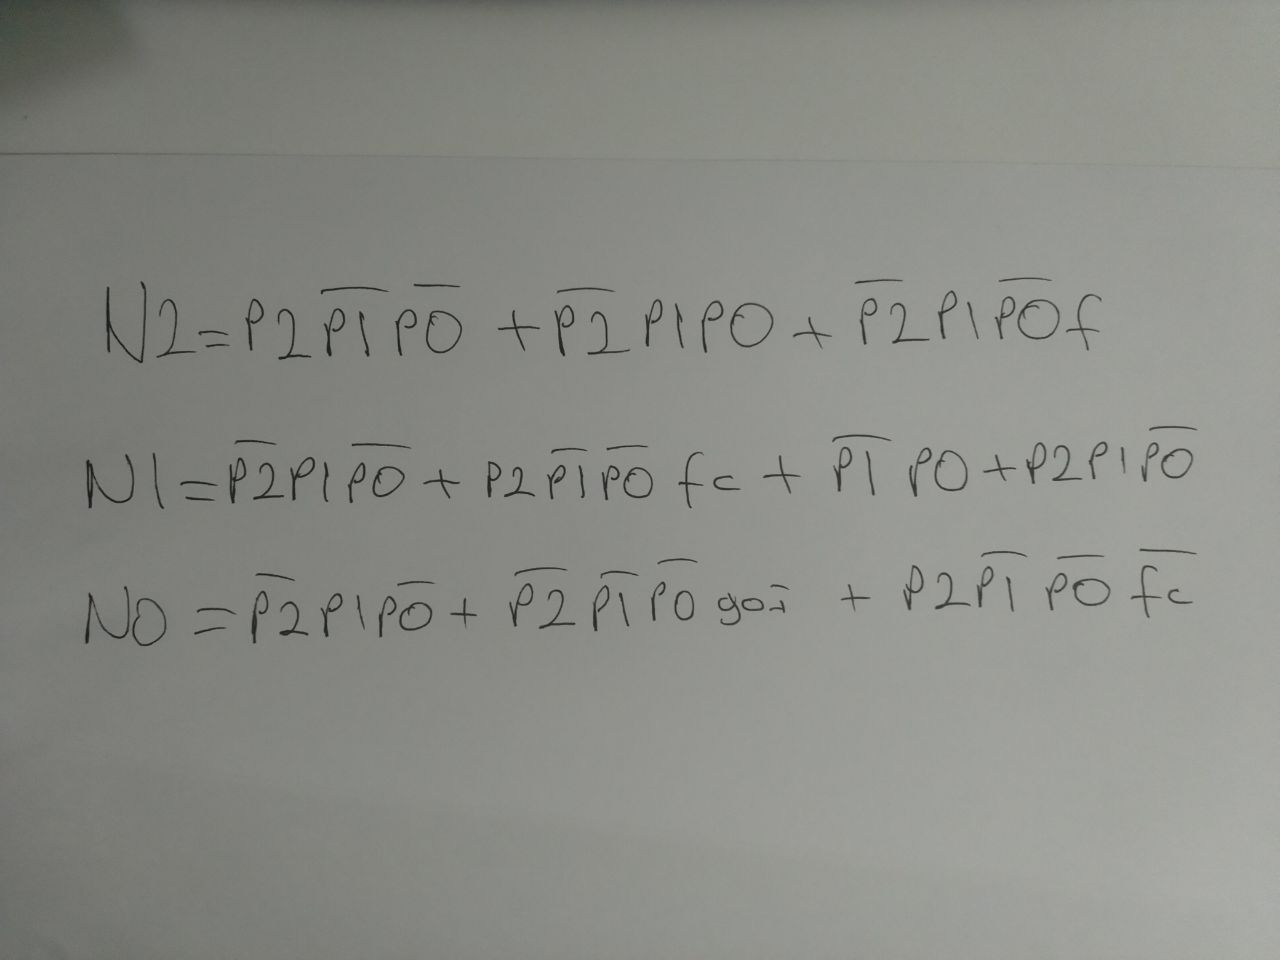 N2=P2P̅1̅P̅0̅+P̅2̅P1P0+P̅2̅P1P̅0̅f
N1=P̅2̅P1P̅0̅+P2P̅1̅P̅0̅fc+P̅1̅P0+P2P1P̅0̅
N0=P̅2̅P1P̅0̅+P̅2̅P̅1̅P̅0̅goi+P2P̅1̅P̅0̅f̅c̅